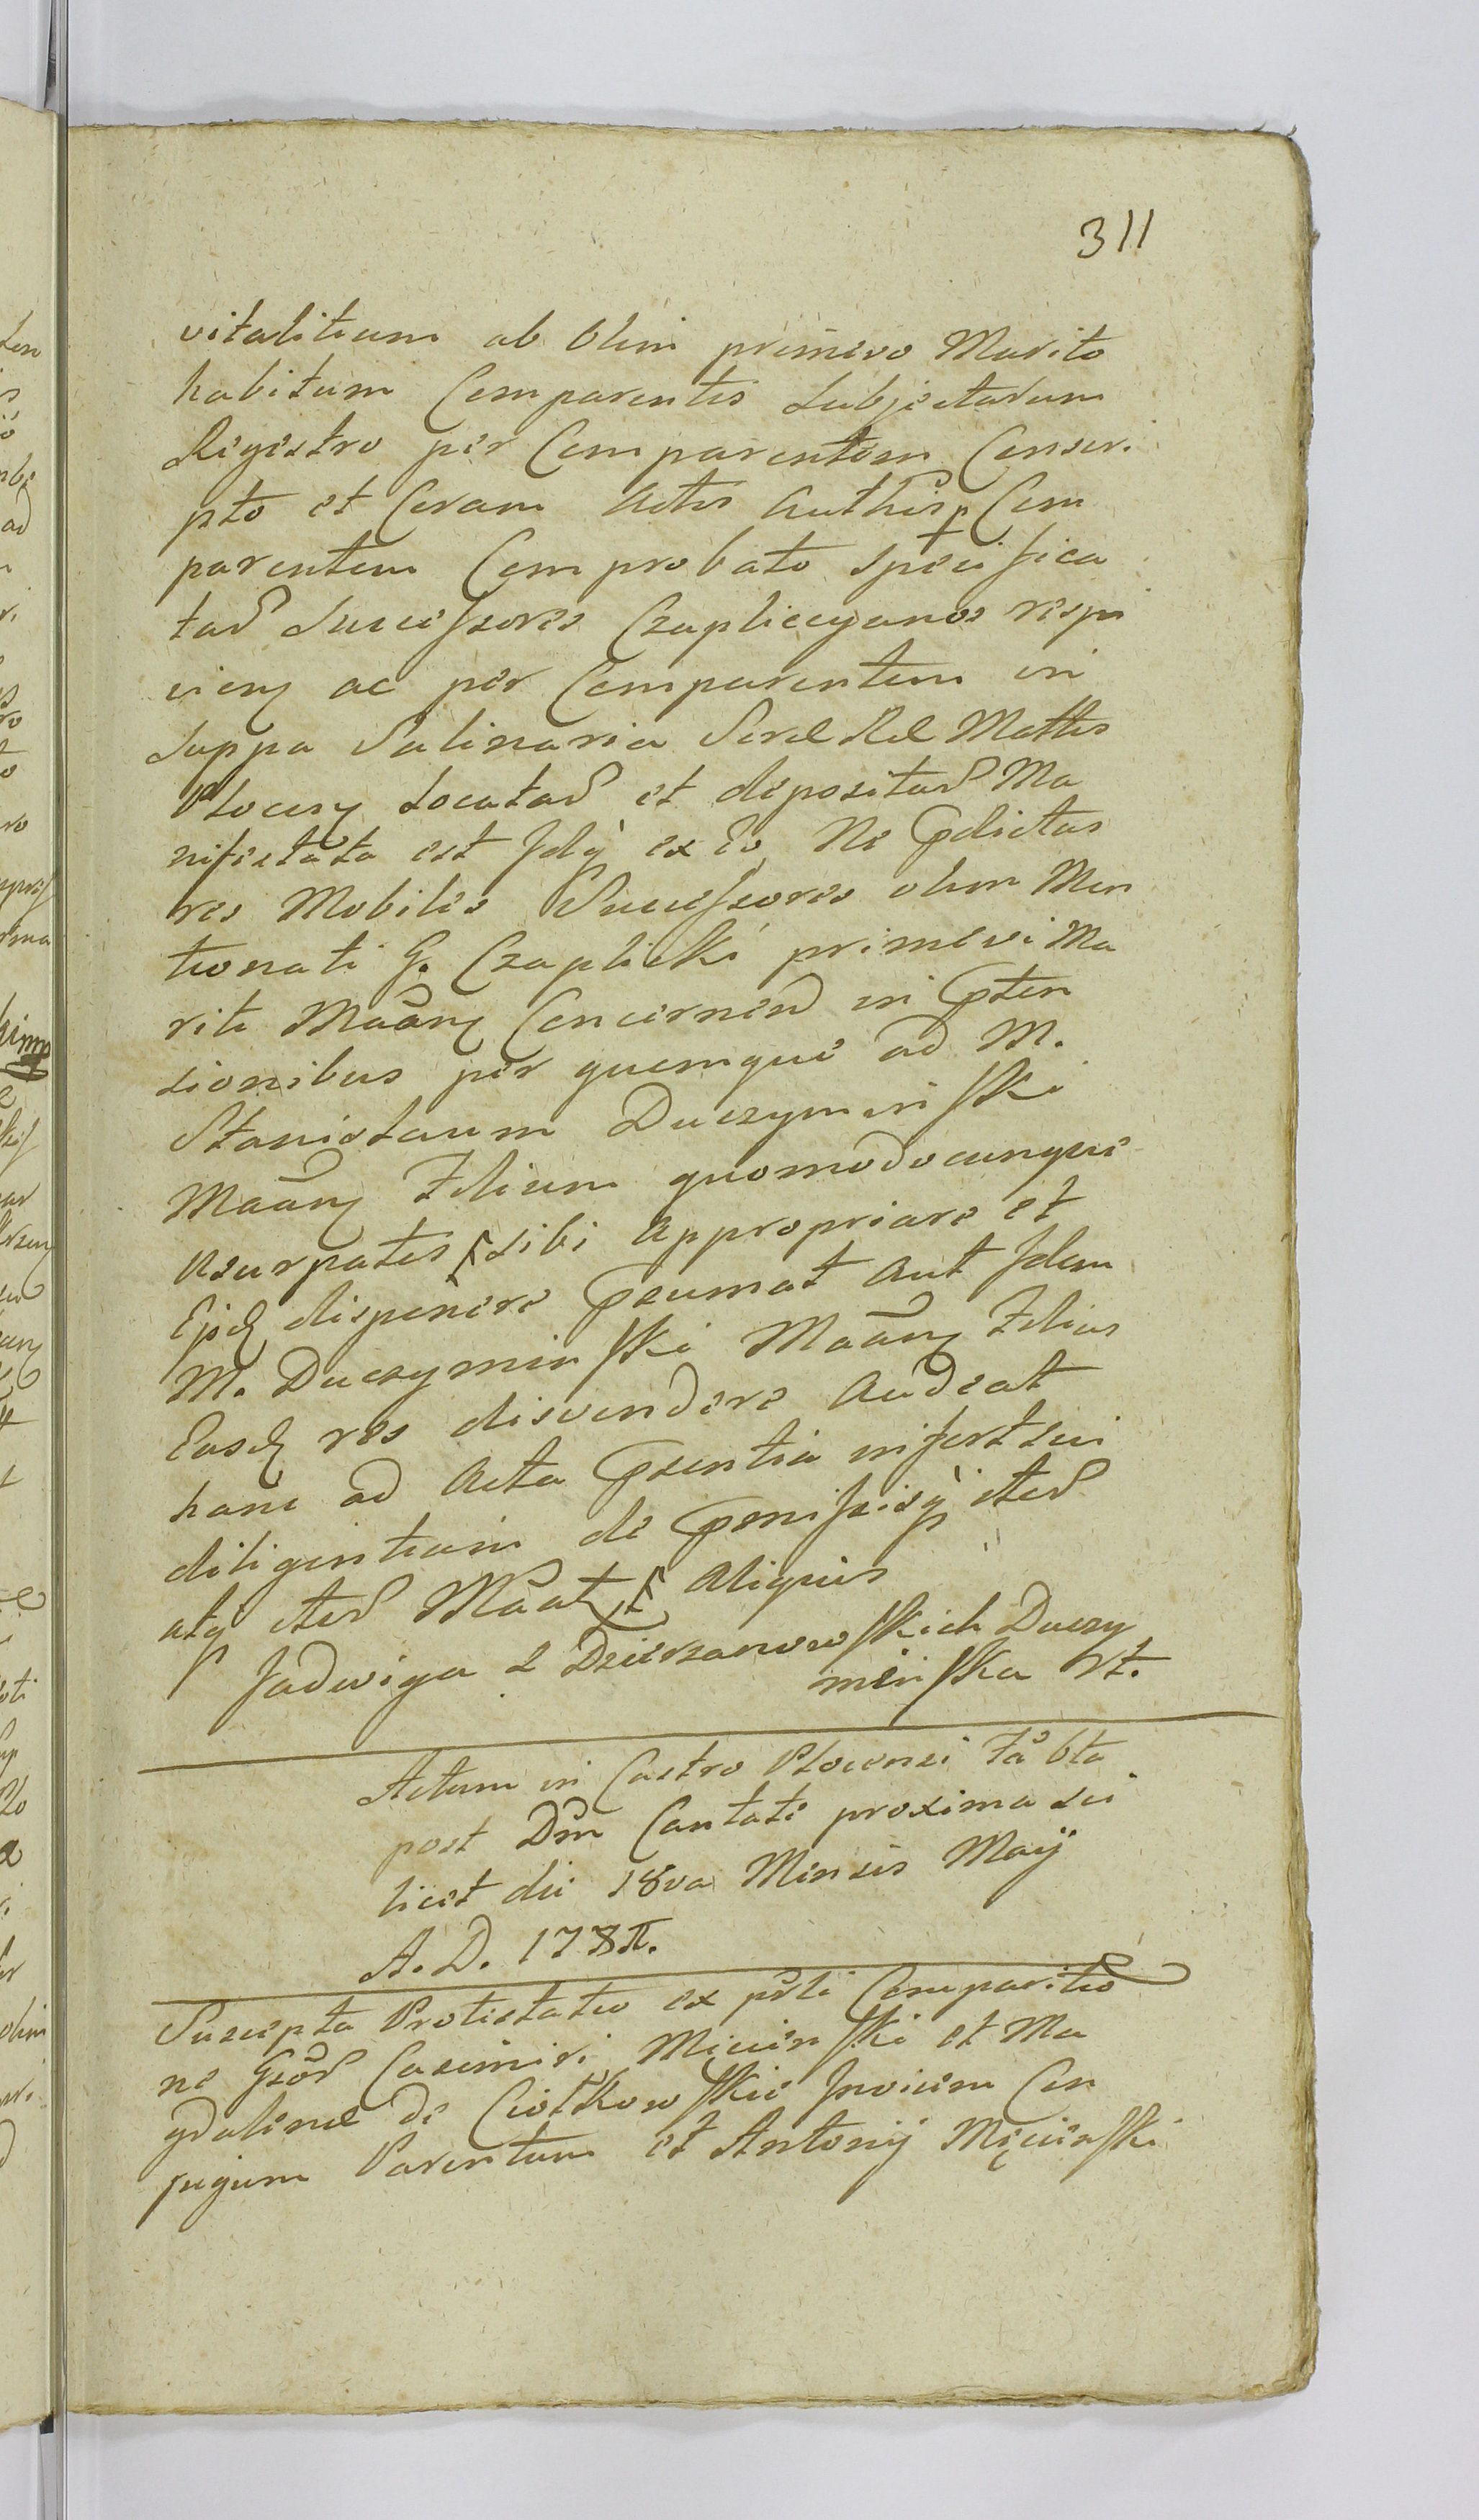 311
vitalitium ab Olim primevo Marito
habitum Comparentis Subjectarum
Regestro per Comparentem Conscri
pto et Coram Actis Authēn p Com
parentem Comprobato specifica
tad Successores Czapliccyanos respi
cien ac per Comparentem in
Suppa Salinaria Seren Rel Mattis
Plocen Locatad et depositad Ma
nifestata est Idq ex Eo Ne Pdictas
res Mobiles Successores olim Men
tionati G. Czaplicki primevi Ma
riti Māān Concernen in Pten
sionibus per quemque ad M.
Stanislaum Duczyminski
Māān Filium quomodocunque
usurpatis sibi appropriare et
Ejsd disponere Psumat Aut Idem
M. Duczyminski Māān Filius
Easd res disvendere Audeat
hanc ad Acta Psentia infert sui
diligentiam de Pmissisq iterd
atq iterd Māāt Aliquis
Jadwiga z Dzierzanowskich Duczy
minska vt.
Actum in Castro Plocensi Fā 6ta
post Dm̄ Cantate proxima sci
licet die 18va Mensis Maij
A. D. 178π.
Suscepta Protestatio ex pōti Comparitio
ne Gsōd Casimiri Mięcinski et Ma
gdalenae de Ciołkowskie Invicem Con
jugum Parentum et Antonij Mięcinski